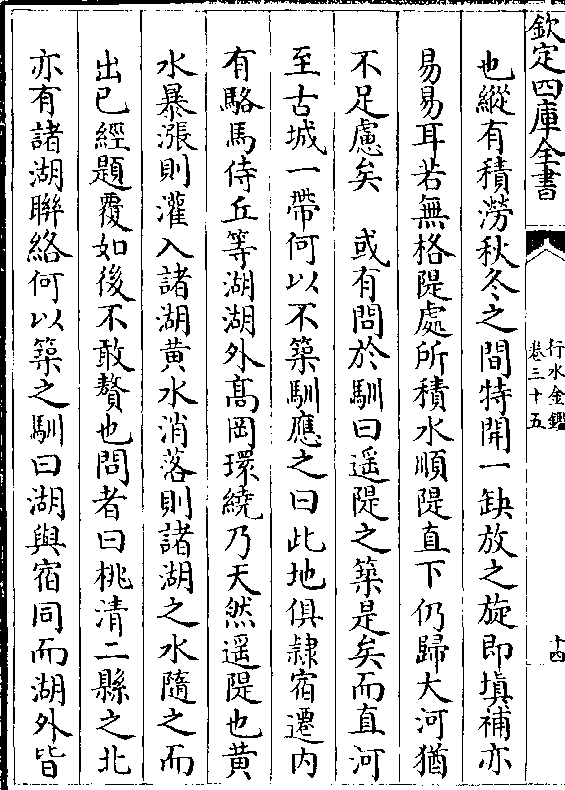 欽定四庫全書
行水金鑑
卷三十五
十四
也縱有積澇秋冬之間特開一缺放之旋即填補亦
易易耳若無格隄處所積水順隄直下仍歸大河猶
不足慮矣　或有問於馴曰遥隄之築是矣而直河
至古城一帶何以不築馴應之曰此地俱隷宿遷内
有駱馬侍丘等湖湖外髙岡環繞乃天然遥隄也黄
水暴漲則灌入諸湖黄水消落則諸湖之水隨之而
出已經題覆如後不敢贅也問者曰桃清二縣之北
亦有諸湖聯絡何以築之馴曰湖與宿同而湖外皆